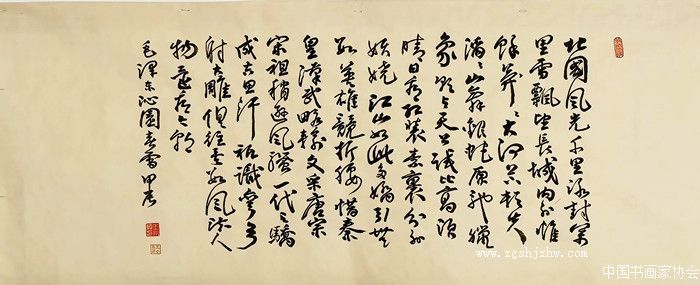 北國風光千里冰封萬
里雪飄望長城內外惟
餘莽〻大河上下頓失
滔〻山舞銀蛇原馳蠟
象欲与天公試比高須
晴日看紅裝素裹分外
妖嬈江山如此多嬌引無
數英雄競折腰惜秦
皇漢武略輸文采唐宗
宋祖稍遜風騷一代天驕
成吉思汗祇識彎弓
射大雕俱往矣數風流人
物還看今朝
毛澤東沁園春雪甲
www.zgshjxhw.com
中国书画家协会